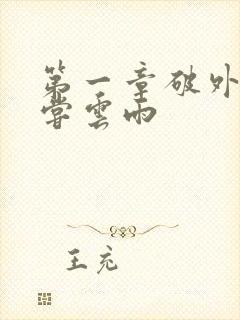 第一章破外
嘗雲雨
王充